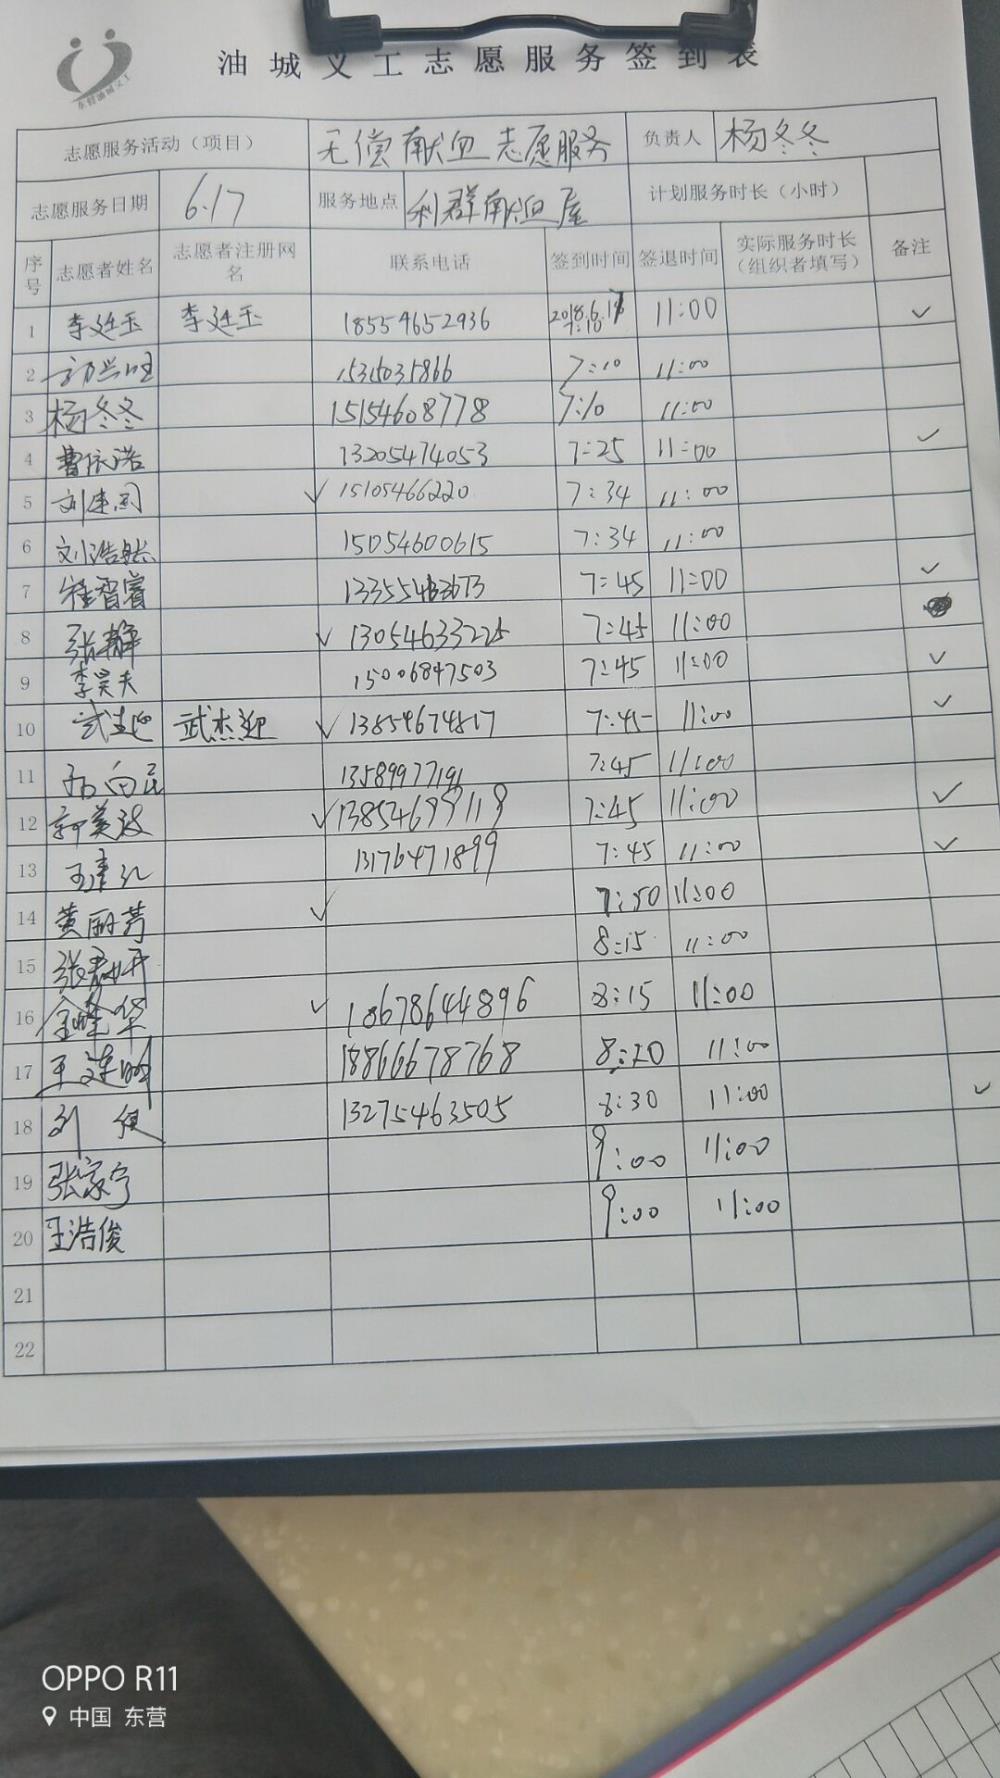 东营油城义工
油城义工志愿服务签到表
志愿服务活动（项目） 无偿献血志愿服务 负责人 杨冬冬
志愿服务日期 6.17 服务地点 利群献血屋 计划服务时长（小时）
序号 志愿者姓名 志愿者注册网名 联系电话 签到时间 签退时间 实际服务时长（组织者填写） 备注
1 李廷玉 李廷玉 18554652936 2018.6.17 7:10 11:00 ✓
2 7:10 11:00
3 杨冬冬 15154608778 7:10 11:00
4 曹依诺 13205474053 7:25 11:00 ✓
5 刘建国 ✓ 15105466220 7:34 11:00
6 刘浩然 15054600615 7:34 11:00
7 智睿 7:45 11:00 ✓
8 张静 ✓ 13054633225 7:45 11:00
9 李昊夫 15006847503 7:45 11:00 ✓
10 武杰迎 武杰迎 ✓ 13854674817 7:45 11:00 ✓
11 13589977191 7:45 11:00
12 郭英波 ✓ 13854699119 7:45 11:00 ✓
13 13176471899 7:45 11:00 ✓
14 黄丽芳 ✓ 7:50 11:00
15 张 8:15 11:00
16 金峰华 ✓ 18678644896 8:15 11:00
17 王 18866678768 8:20 11:00
18 刘 13275463505 8:30 11:00 ✓
19 张家宁 9:00 11:00
20 王浩俊 9:00 11:00
21
22
OPPO R11
中国 东营